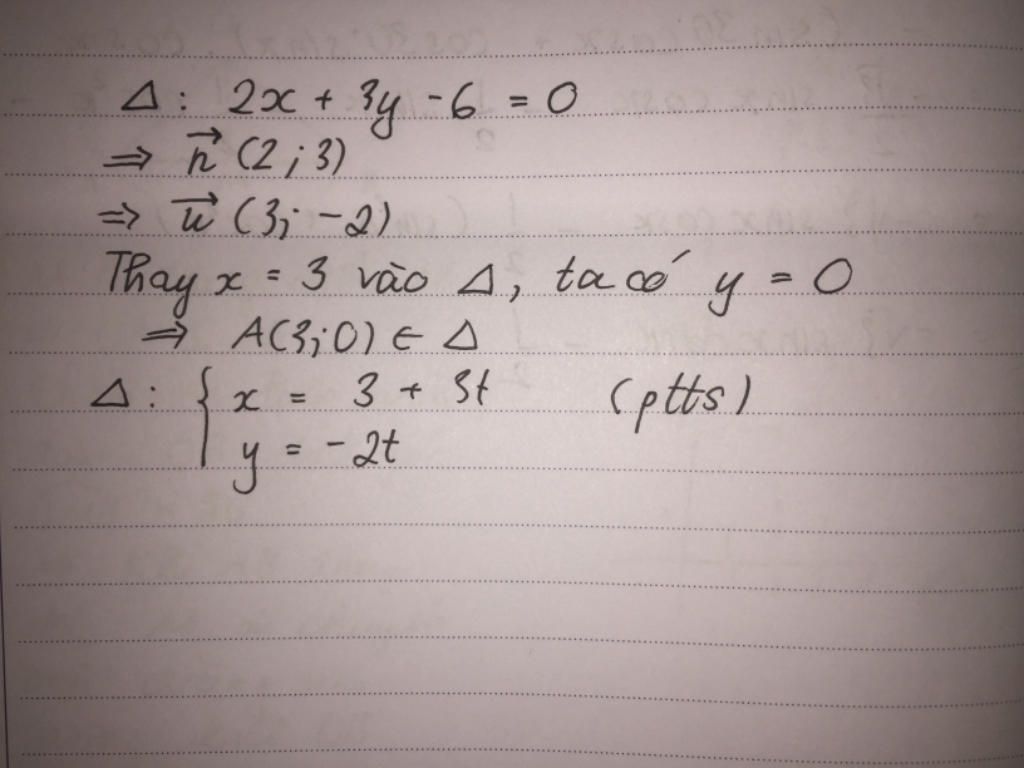 Δ: 2x + 3y - 6 = 0
⇒ n⃗ (2; 3)
⇒ u⃗ (3; -2)
Thay x = 3 vào Δ, ta có y = 0
⇒ A(3; 0) ∈ Δ
Δ: { x = 3 + 3t (ptts)
y = -2t